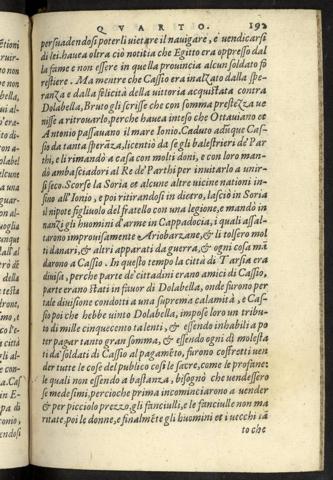 QVARTO. 192
persuadendosi poterli vietare il nauigare, e uendicarsi
di lei. haueua oltra ciò notitia che Egitto era oppresso dal
la fame e non essere in quella prouincia alcun soldato fo
restiere. Ma mentre che Cassio era inalzato dalla spe-
ranza e dalla felicità della vittoria acquistata contra
Dolabella, Bruto gli scrisse che con somma prestezza ue
nisse a ritrouarlo, perche haueua inteso che Ottauiano et
Antonio passauano il mare Ionio. Caduto adũque Cas-
sio da tanta sperãza, licentiò da se gli balestrieri de' Par
thi, e li rimandò a casa con molti doni, e con loro man-
dò ambasciadori al Re de' Parthi per inuitarlo a unir-
si seco. Scorse la Soria et alcune altre uicine nationi in-
sino all'Ionio, e poi ritirandosi in dietro, lasciò in Soria
il nipote figliuolo del fratello con una legione, e mandò in
nanzi gli huomini d'arme in Cappadocia, i quali assal-
tarono improuisamente Ariobarzane, & li tolsero mol
ti danari, & altri apparati da guerra, & ogni cosa mã
darono a Cassio. In questo tempo la città di Tarsia era
diuisa, perche parte de' cittadini erano amici di Cassio,
parte erano stati in fauor di Dolabella, onde furono per
tale diuisione condotti a una suprema calamità, e Cas-
sio poi che hebbe uinto Dolabella, impose loro un tribu-
to di mille cinquecento talenti, & essendo inhabili a po
ter pagar tanto gran somma, & essendo ogni dì molesta
ti da' soldati di Cassio al pagamẽto, furono costretti uen
der tutte le cose del publico così le sacre, come le profane:
le quali non essendo a bastanza, bisognò che uendessero
se medesimi, percioche prima incominciarono a uender
& per picciolo prezzo, gli fanciulli, e le fanciulle non ma
ritate, poi le donne, e finalmẽte gli huomini et i uecchi tã
to che